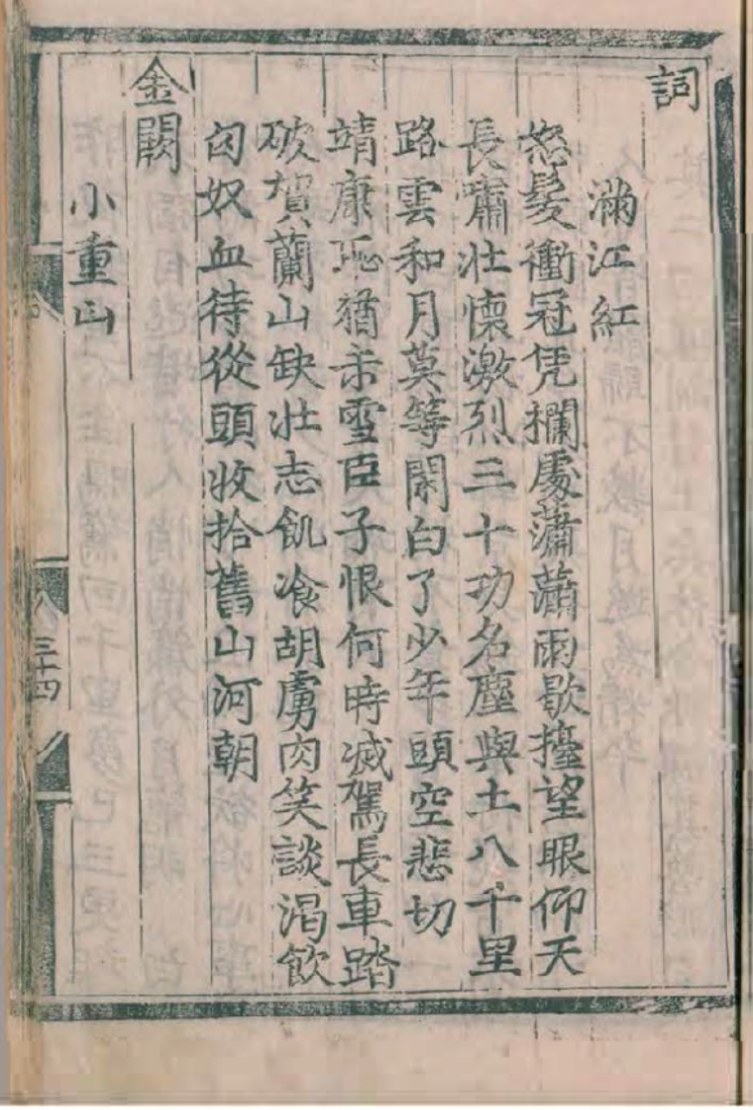 詞
滿江紅
怒髮衝冠凭欄處瀟瀟雨歇擡望眼仰天
長嘯壯懷激烈三十功名塵與土八千里
路雲和月莫等閑白了少年頭空悲切
靖康恥猶未雪臣子恨何時滅駕長車踏
破賀蘭山缺壯志飢飡胡虜肉笑談渴飲
匈奴血待從頭收拾舊山河朝
金闕
小重山
三十四